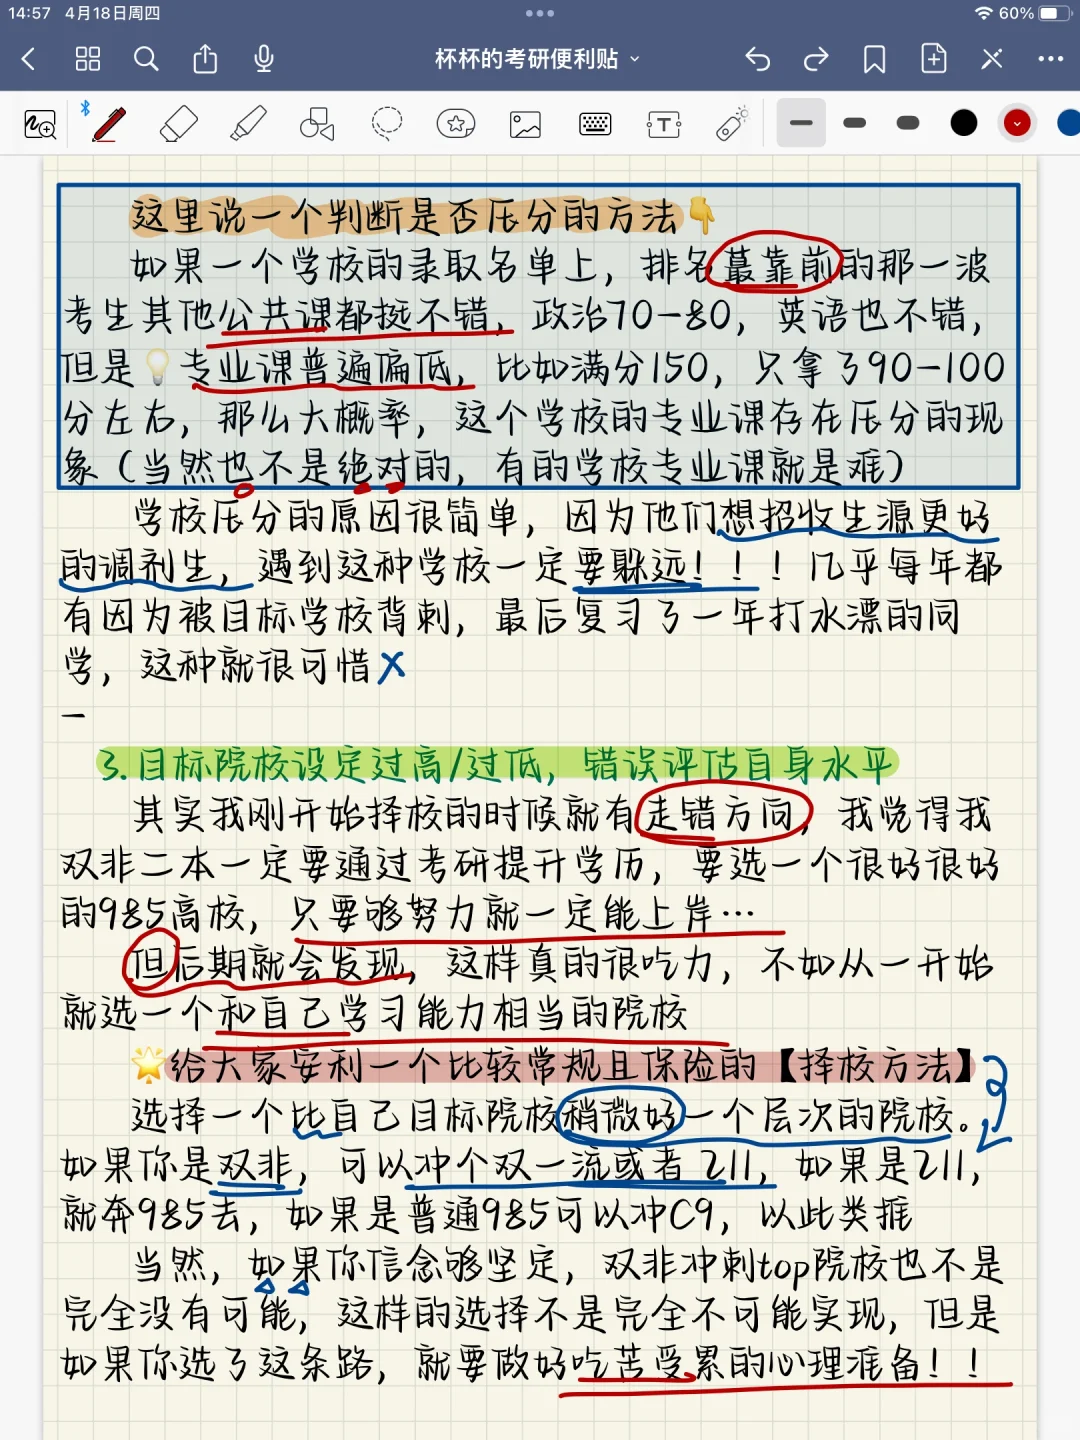 14:57 4月18日周四
60%
杯杯的考研便利贴
这里说一个判断是否压分的方法👇
如果一个学校的录取名单上，排名最靠前的那一波
考生其他公共课都挺不错，政治70-80，英语也不错，
但是💡专业课普遍偏低，比如满分150，只拿了90-100
分左右，那么大概率，这个学校的专业课存在压分的现
象（当然也不是绝对的，有的学校专业课就是难）
学校压分的原因很简单，因为他们想招收生源更好
的调剂生，遇到这种学校一定要躲远！！！几乎每年都
有因为被目标学校背刺，最后复习了一年打水漂的同
学，这种就很可惜X
—
3.目标院校设定过高/过低，错误评估自身水平
其实我刚开始择校的时候就有走错方向，我觉得我
双非二本一定要通过考研提升学历，要选一个很好很好
的985高校，只要够努力就一定能上岸…
但后期就会发现，这样真的很吃力，不如从一开始
就选一个和自己学习能力相当的院校
🌟给大家安利一个比较常规且保险的【择校方法】
选择一个比自己目标院校稍微好一个层次的院校。
如果你是双非，可以冲个双一流或者211，如果是211，
就奔985去，如果是普通985可以冲C9，以此类推
当然，如果你信念够坚定，双非冲刺top院校也不是
完全没有可能，这样的选择不是完全不可能实现，但是
如果你选了这条路，就要做好吃苦受累的心理准备！！